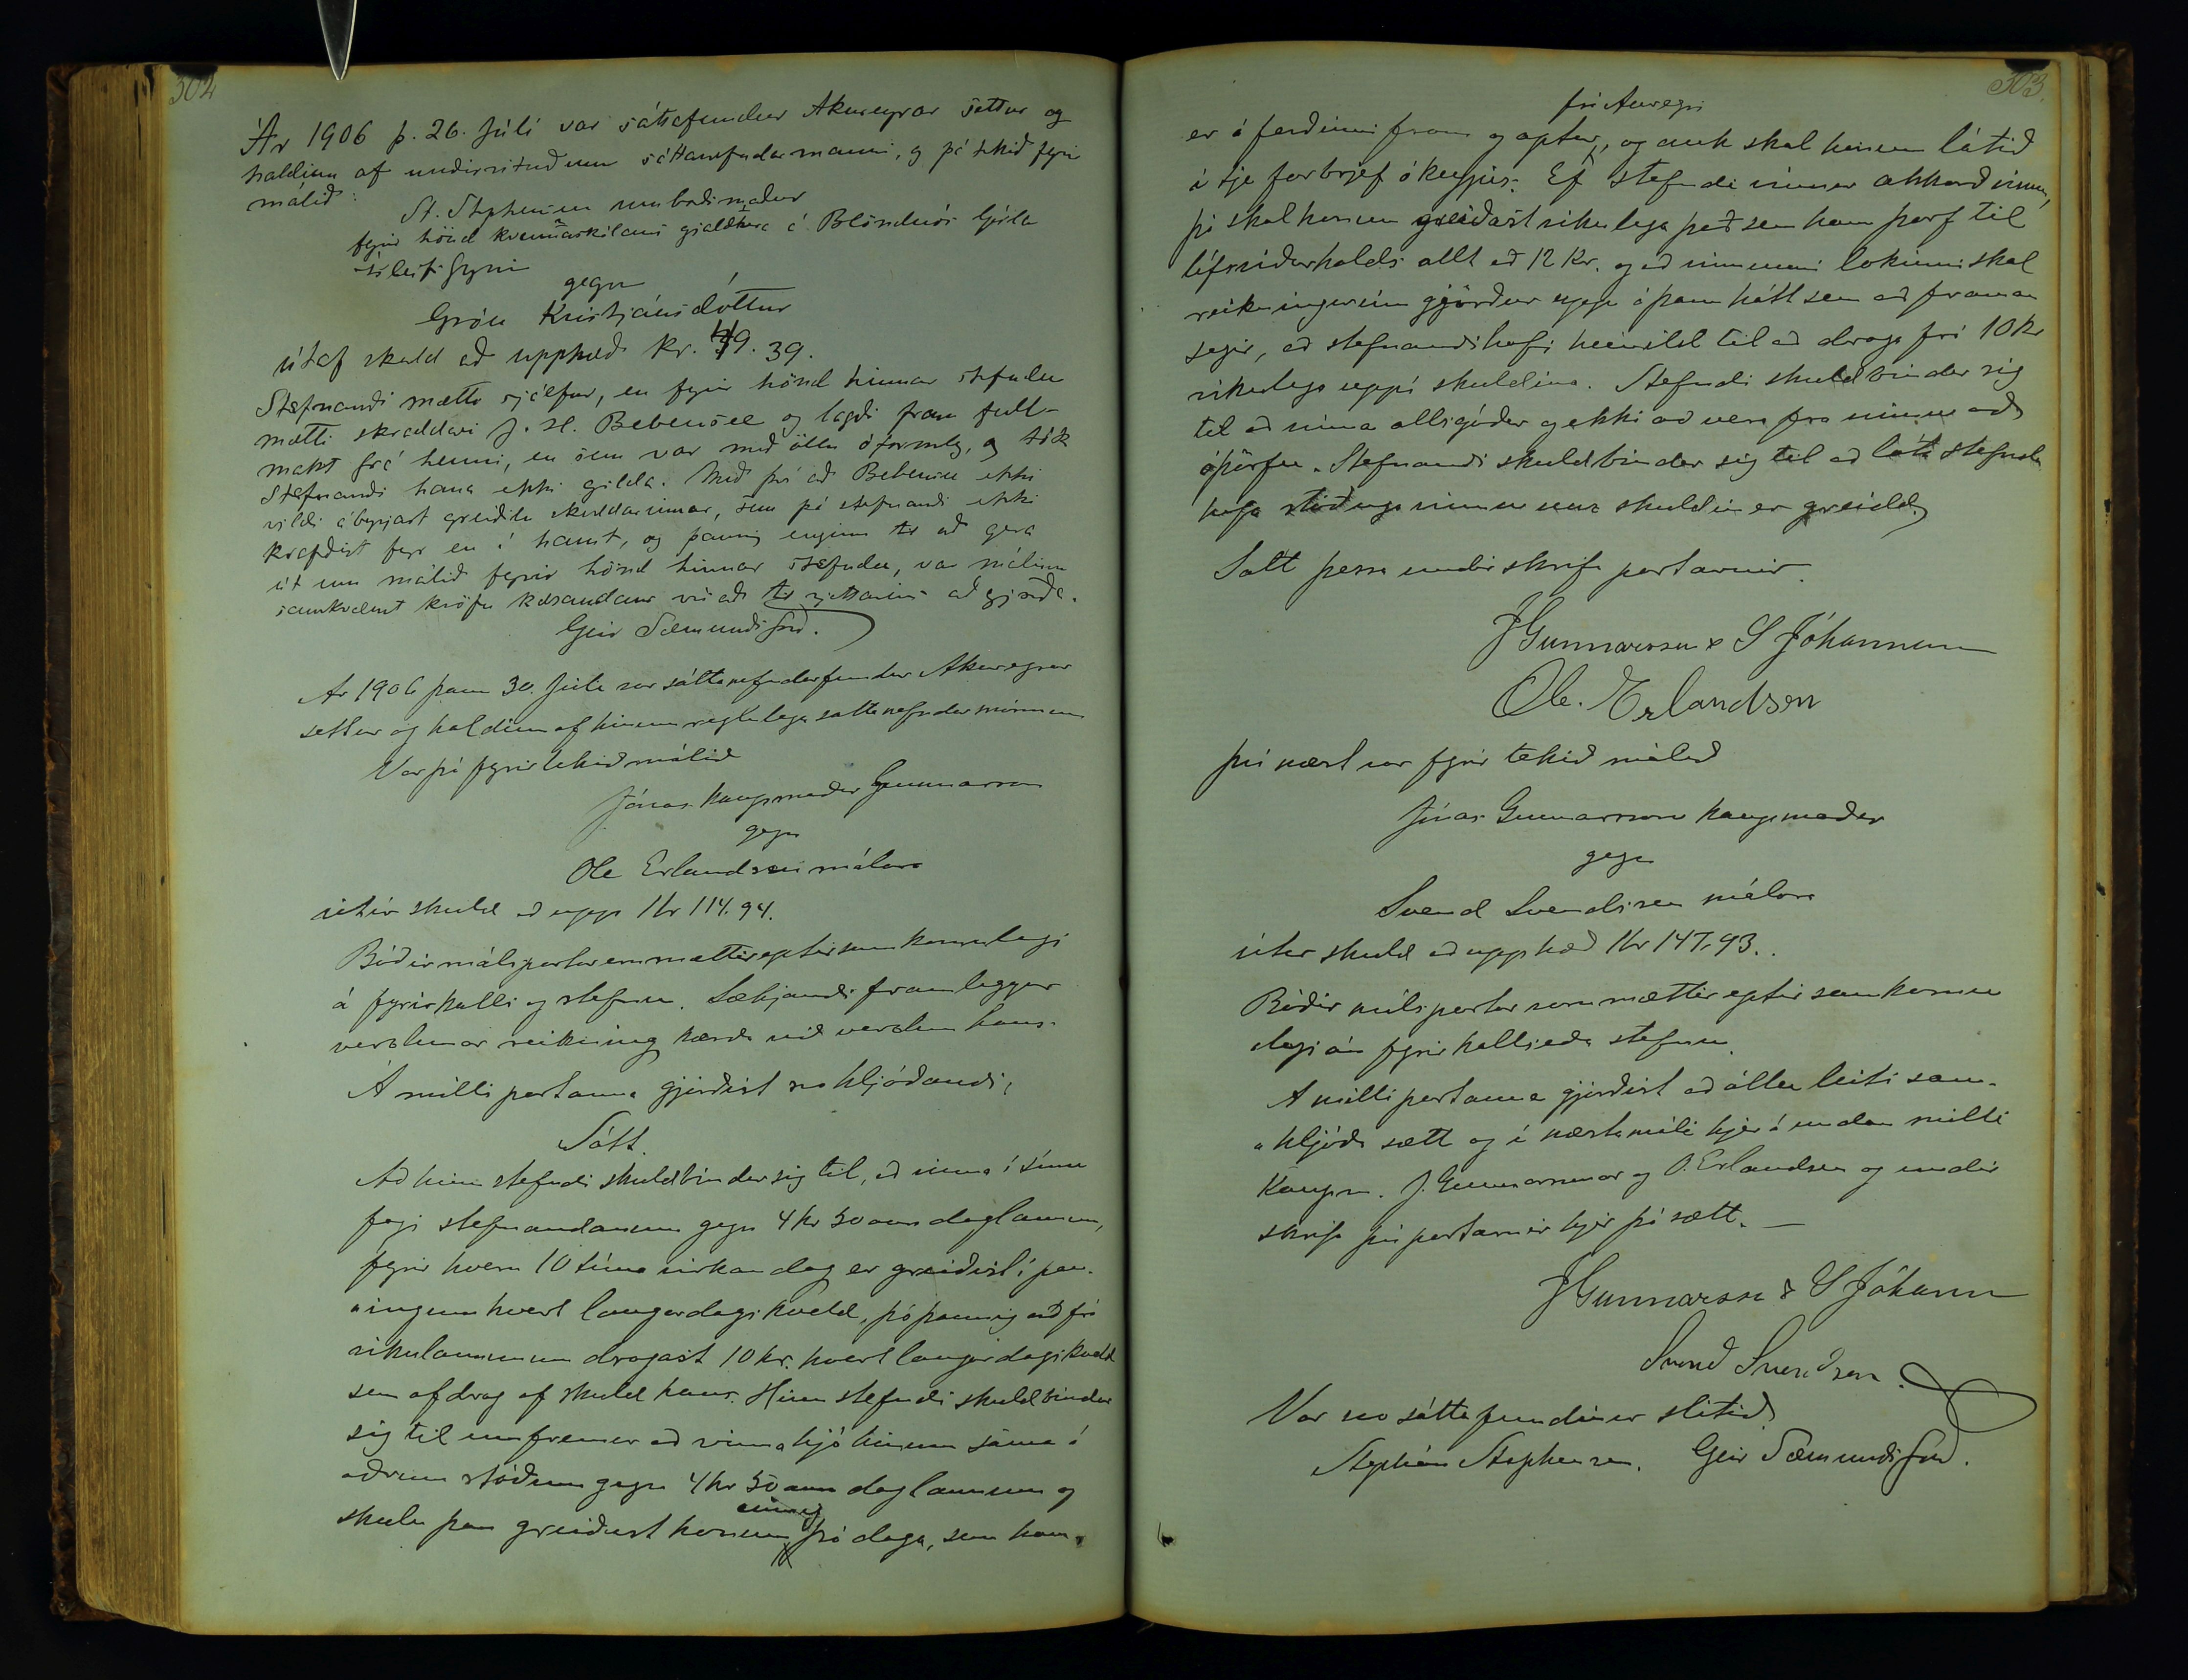 302
Ár 1906 þ. 26. Júlí var sáttafundur Akureyrar settur og
haldinn af undirrituðum sáttanefndarmanni, og þá tekið fyrir
málið:
St. Stephensen umboðsmaður
fyrir hönd kvennaskólans gjaldkera á Blönduósi Gísla
Ísleifssyni
gegn
Gróu Kristjánsdóttur
útaf skuld að upphæð kr. 49.39.
Stefnandi mætti sjálfur, en fyrir hönd hinnar stefndu
mætti skraddari J. H. Bebensee og lagði fram full-
makt frá henni, en sem var með öllu óformleg, og tók
Stefnandi hana ekki gilda. Með því að Bebensee ekki
vildi ábyrjast greiðslu skuldarinnar, sem þó stefnandi ekki
krafðist fyr en í haust, og þannig enginn til að gera
út um málið fyrir hönd hinnar stefndu, var málinu
samkvæmt kröfu kærandans vísað til rjettarins aðgjörða.
Geir Sæmundsson.
Ár 1906 þann 30. Júli var sáttanefndarfundur Akureyrar
settur og haldinn af hinum reglulegu sáttanefndarmönnum
Var þá fyrirtekið málið
Jónas kaupmaður Gunnarsson
gegn
Ole Erlandsen málara
útúr skuld að upp Kr 114.94.
Báðir málspartar eru mættir eptir samkomulagi
á fyrirkalli og stefnu. Sækjandi framleggur
verslunar reikning kærða við verslun hans.
Á milli partanna gjörðist svo hljóðandi,
Sátt.
Að hinn stefndi skuldbindur sig til, að vinna í sínu
fagi stefnandanum gegn 4 kr 50 aura daglaunum,
fyrir hvern 10 tíma virkan dag er greiðist í pen-
ingum hvert laugardagskveld, þó þannig að frá
vikulaununum dragast 10 kr. hvert laugardagskveld
sem afdrag af skuld hans. Hinn stefndi skuldbindur
sig til ennfremur að vinna hjá hinum sama á
öðrum stöðum gegn 4 kr 50 aura daglaunum og
skulu þau greiðast honum einnig þá daga, sem hann
303.
frá Akureyri
er á ferðinni fram og aptur, og auk skal honum látið
í tje farbrjef ókeypis. Ef stefndi vinnur akkorðvinnu,
þá skal honum greiðast vikulega það sem hann þarf til
lífsviðurhalds allt að 12 Kr. og að vinnunni lokinni skal
reikningurinn gjörður upp á þann hátt sem að framan
segir, að stefnandi hafi heimild til að draga frá 10 kr
vikulega uppí skuldina. Stefndi skuldbindur sig
til að vinna alla góða og ekki að vera frá vinnu að
óþörfu. Stefnandi skuldbindur sig til að láta stefnda
hafa stöðuga vinnu uns skuldin er greidd.
Sátt þessa undirskrifa partarnir.
JGunnarsson & S Jóhannesson
Ole. Erlandsen
því næst var fyrir tekið málið
Jónas Gunnarsson kaupmaður
gegn
Svend Svendsen málara
útúr skuld að upphæð Kr 147.93.
Báðir málspartar voru mættir eptir samkomu
lagi án fyrirkalls eða stefnu.
Á milli partanna gjörðist að öllu leiti sam-
hljóða sætt og í næsta máli hjer á undan milli
Kaupm. J. Gunnarssonar og O. Erlandsen og undir
skrifa því partarnir hjer þá sætt. —
JGunnarsson & S Jóhann
Svend Svendsen.
Var svo sáttafundinum slitið.
Stephán Stephensen. Geir Sæmundsson.